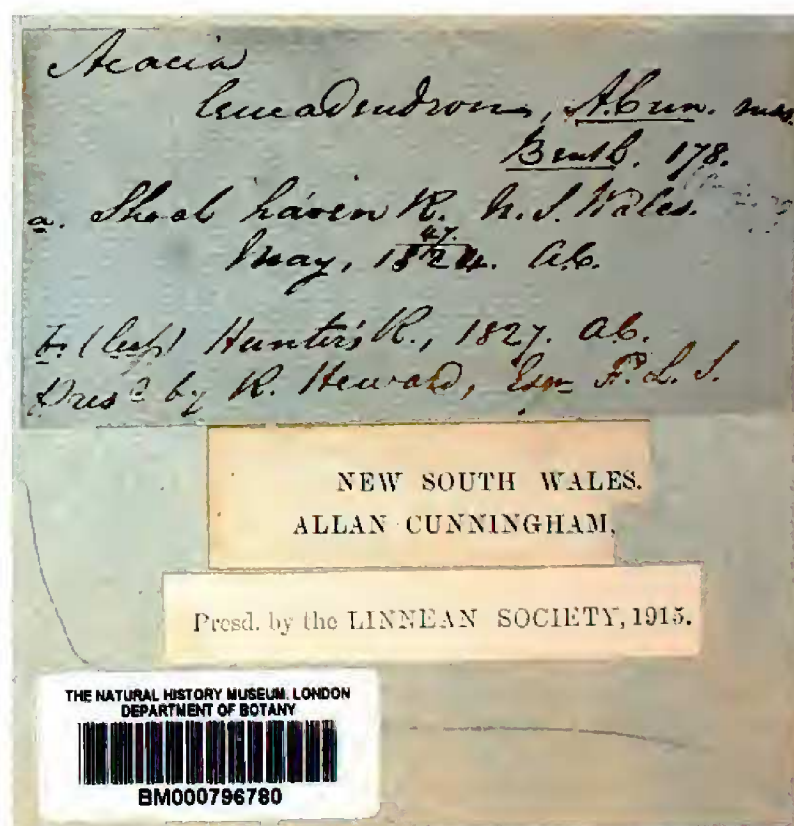 Acacia
leucadendron, A.Cun. mss.
Benth. 178.
a. Shoal haven R. N. S. Wales.
47.
May, 1824. A.C.
b. (left) Hunter's R., 1827. A.C.
Pres.d by R. Heward, Esqr F. L. S.
NEW SOUTH WALES.
ALLAN CUNNINGHAM,
Presd. by the LINNEAN SOCIETY, 1915.
THE NATURAL HISTORY MUSEUM. LONDON
DEPARTMENT OF BOTANY
BM000796780